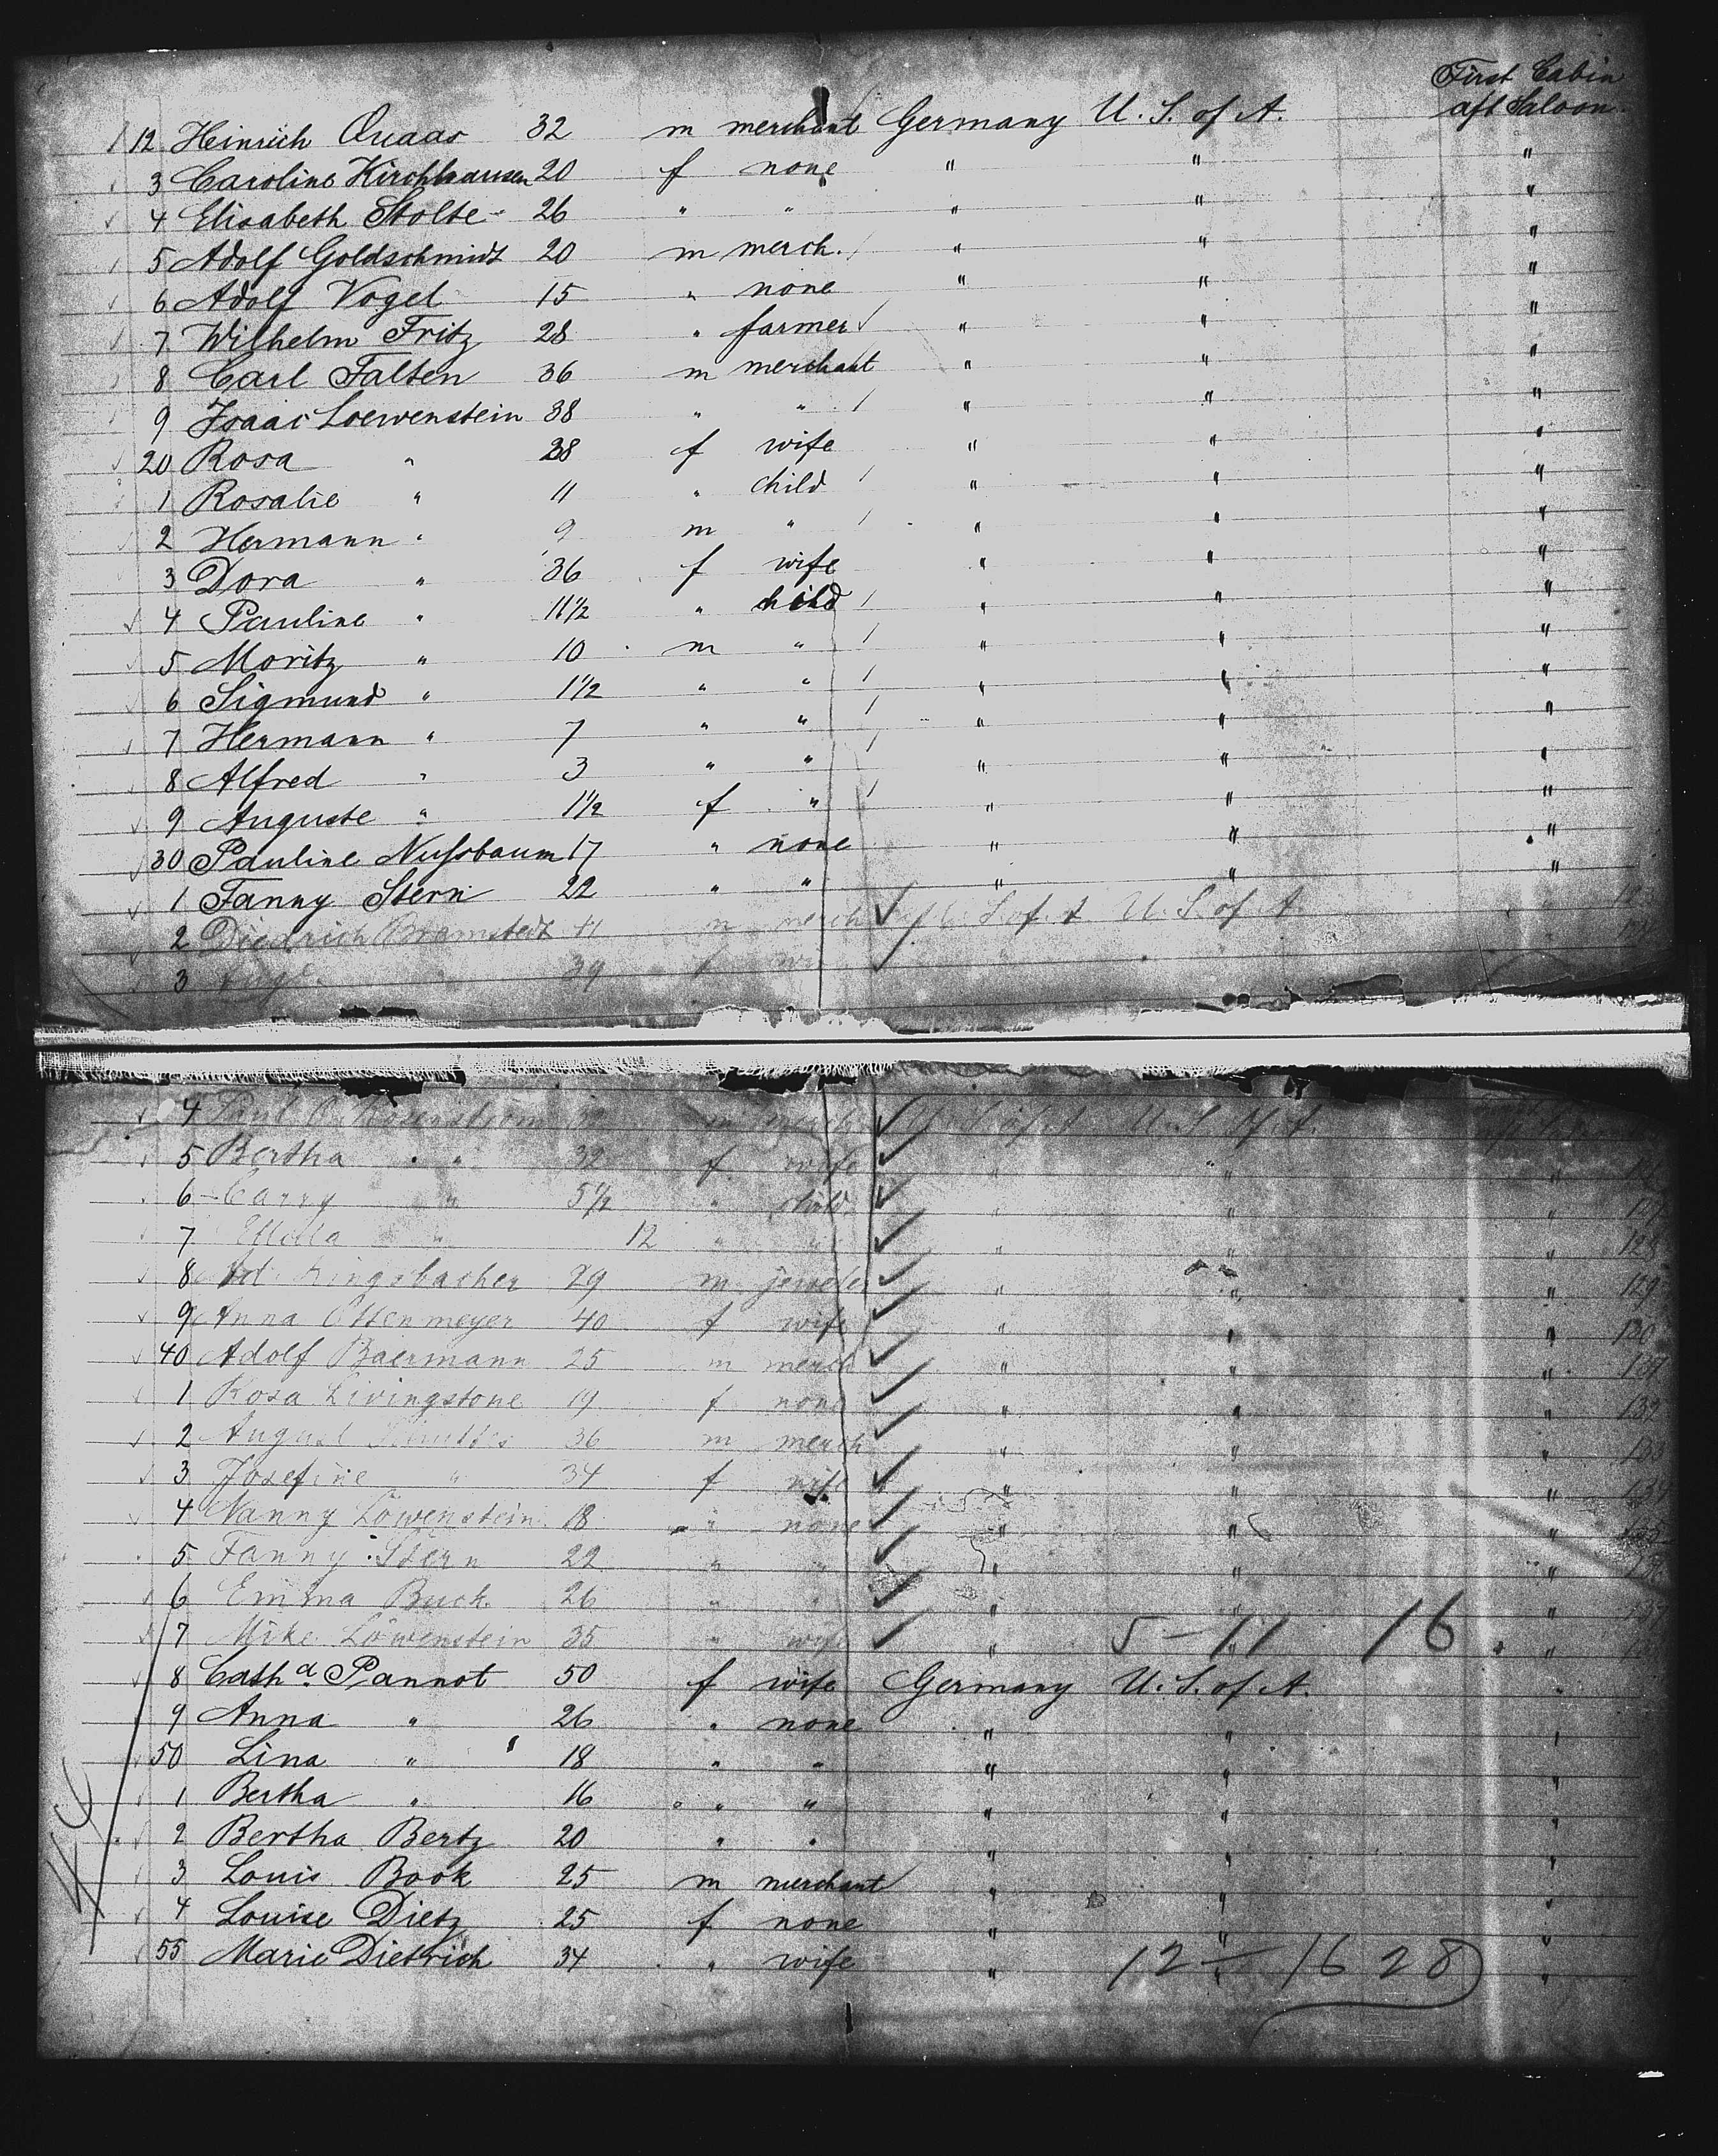 First Cabin
12 Heinrich Quaas 32 m merchant Germany U. S. of A. aft Saloon.
3 Caroline Kirchhausen 20 f none " " "
4 Elisabeth Stolte 26 " " " " "
5 Adolf Goldschmidt 20 m merch. " " "
6 Adolf Vogel 15 " none " " "
7 Wilhelm Fritz 28 " farmer " " "
8 Carl Falten 36 m merchant " " "
9 Isaac Loewenstein 38 " " " " "
20 Rosa " 38 f wife " " "
1 Rosalie " 11 " child " " "
2 Hermann " 9 m " " " "
3 Dora " 36 f wife " " "
4 Pauline " 11 1/2 " child " " "
5 Moritz " 10 m " " " "
6 Sigmund " 1 1/2 " " " " "
7 Hermann " 7 " " " " "
8 Alfred " 3 " " " " "
9 Auguste " 1 1/2 f " " " "
30 Pauline Nußbaum 17 " none " " "
1 Fanny Stern 22 " " " " "
2 Diedrich Bramstedt 41 m merch U. S. of A U. S. of A. "
3 39
4 m merch U. S. of A U. S. of A.
5 Bertha " 32 f wife " " "
6 Carry " 5 1/2 " child " " "
7 " 12 " " " " " 128
8 Ad. Ringsbacher 29 m jeweler " " " 129
9 Anna Ottenmeyer 40 f wife " " " 130
40 Adolf Baermann 25 m merch " " " 131
1 Rosa Livingstone 19 f none " " " 132
2 August 36 m merch " " " 133
3 Josefine " 34 f wife " " " 134
4 Nanny Löwenstein 18 " none " " " 135
5 Fanny Stern 22 " " " " " 136
6 Emma Buck. 26 " " " " " 137
7 Mike Löwenstein 35 " wife " 5 - 11 16 "
8 Cath.a Pannot 50 f wife Germany U. S. of A. "
9 Anna " 26 " none " " "
50 Lina " 18 " " " " "
1 Bertha " 16 " " " " "
2 Bertha Bertz 20 " " " " "
3 Louis Book 25 m merchant " " "
4 Louise Dietz 25 f none " " "
55 Marie Dietrich 34 " wife " 12 - 16 28 "